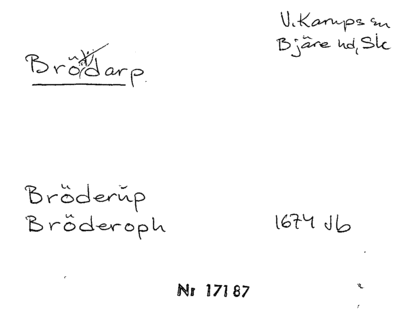 V. Karups sn
Bjäre hd, Sk
Brödarp
Bröderŭp
Bröderoph 1674 Jb
Nr 17187